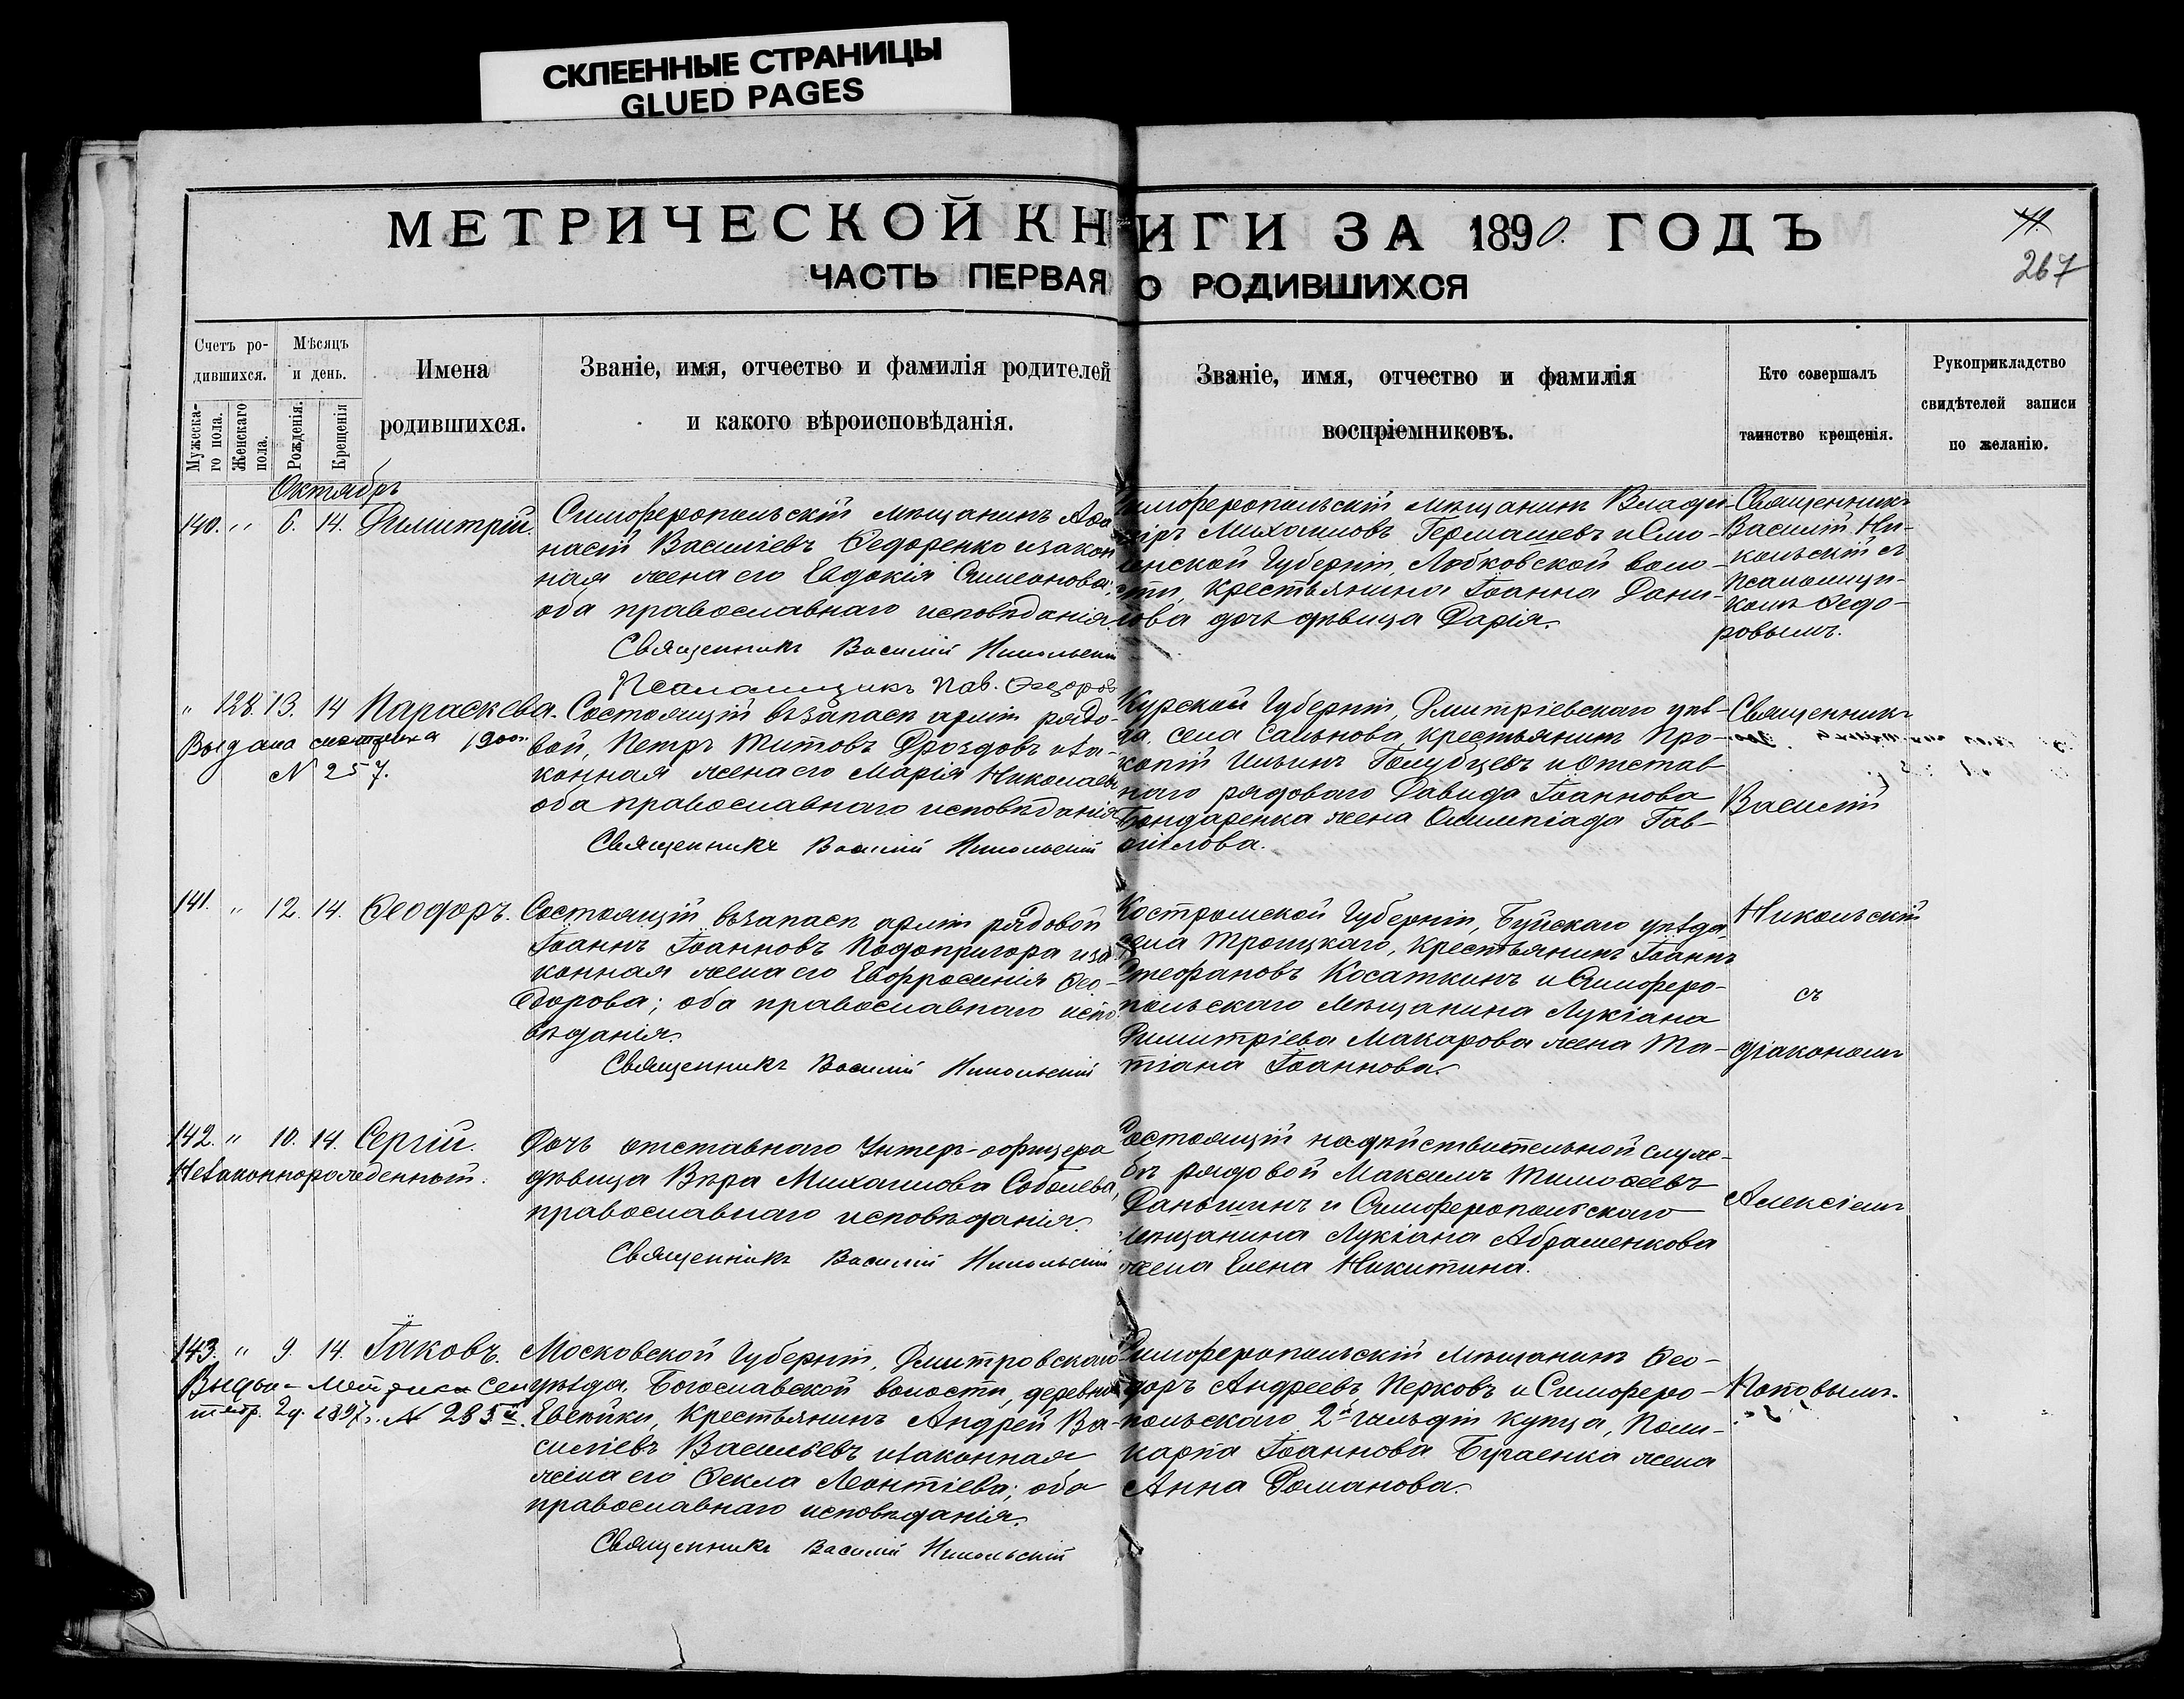 СКЛЕЕННЫЕ СТРАНИЦЫ
GLUED PAGES
МЕТРИЧЕСКОЙ КНИГИ ЗА 1890. ГОДЪ
ЧАСТЬ ПЕРВАЯ О РОДИВШИХСЯ
267
Счетъ ро-
дившихся.
Мужеска-
го пола.
Женскаго
пола.
Мѣсяцъ
и день.
Рожденія.
Крещенія
Имена
родившихся.
Званіе, имя, отчество и фамилія родителей
и какого вѣроисповѣданія.
Званіе, имя, отчество и фамилія
воспріемниковъ.
Кто совершалъ
таинство крещенія.
Рукоприкладство
свидѣтелей записи
по желанію.
Октябрь
140. " 6. 14. Димитрій.
Симферопольскій мѣщанинъ Аѳа-
насій Василіевъ Ѳедоренко и закон
ная жена его Евдокія Симеонова;
оба православнаго исповѣданія.
Священникъ Василій Никольскій
Псаломщикъ Пав. Ѳедоровъ
Симферопольскій мѣщанинъ Влади-
міръ Михаиловъ Гермашевъ и Смо-
ленской Губерніи, Лобковской воло-
сти, крестьянина Іоанна Дани-
лова дочь дѣвица Дарія.
Священникъ
Василій Ни-
кольскій съ
псаломщи-
комъ Ѳедо-
ровымъ.
" 128. 13. 14 Параскева.
Выдана 1900г.
N 257.
Состоящій въ запасѣ арміи рядо-
вой, Петръ Титовъ Дроздовъ и за-
конная жена его Марія Николаева
оба православнаго исповѣданія
Священникъ Василій Никольскій
Курской Губерніи, Дмитріевскаго уѣз-
да, села Сальнова, крестьянинъ Про-
копій Ильинъ Голубцевъ и отстав
наго рядоваго Давида Іоаннова
Бондаренка жена Олимпіада Гав-
риілова.
Василій
141. " 12. 14. Ѳеодоръ.
Состоящій въ запасѣ арміи рядовой
Іоаннъ Іоанновъ Подопригора и за
конная жена его Евфросинія Ѳео-
дорова; оба православнаго испо-
вѣданія.
Священникъ Василій Никольскій
Костромской Губерніи, Буйскаго уѣзда,
села Троицкаго, крестьянинъ Іоаннъ
Стефановъ Косаткинъ и Симферо-
польскаго мѣщанина Лукіана
Димитріева Макарова жена Та-
тіана Іоаннова.
Никольскій
съ
діакономъ
142. " 10. 14. Сергій.
Незаконнорожденный.
Дочь отставнаго Унтеръ-офицера
дѣвица Вѣра Михаилова Соболева,
православнаго исповѣданія.
Священникъ Василій Никольскій
Состоящій на дѣйствительной служ-
бѣ рядовой Максимъ Тимоѳеевъ
Даньшинъ и Симферопольскаго
мѣщанина Лукіана Абраменкова
жена Елена Никитина.
Алексіемъ
143. " 9. 14. Іаковъ.
Выдана сен
тябр. 2д. 1897г. N 285й.
Московской Губерніи, Дмитровскаго
уѣзда, Богославской волости, деревни
крестьянинъ Андрей Ва-
силіевъ Васильевъ и законная
жена его Ѳекла Леонтіева; оба
православнаго исповѣданія.
Священникъ Василій Никольскій
Симферопольскій мѣщанинъ Ѳео-
доръ Андреевъ Перковъ и Симферо-
польскаго 2й гильдіи купца, Поли-
карпа Іоаннова Бугаенка жена
Анна Романова.
Поповымъ.